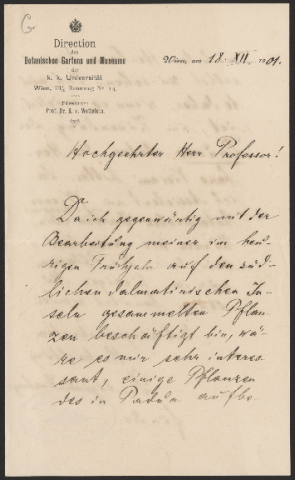 G
Direction
des
Botanischen Gartens und Museums
der
k. k. Universität
Wien, III/3 Rennweg Nr 14.
Prof. Dr. R. v. Wettstein.
Wien, am 18. XII. 1901.
Hochgeehrter Herr Professor!
Da ich gegenwärtig mit der
Bearbeitung meiner im heu-
rigen Frühjahr auf den süd-
lichen dalmatinischen In-
seln gesammelten Pflan-
zen beschäftigt bin, wä-
re es mir sehr interes
sant, einige Pflanzen
des in Padua aufbe